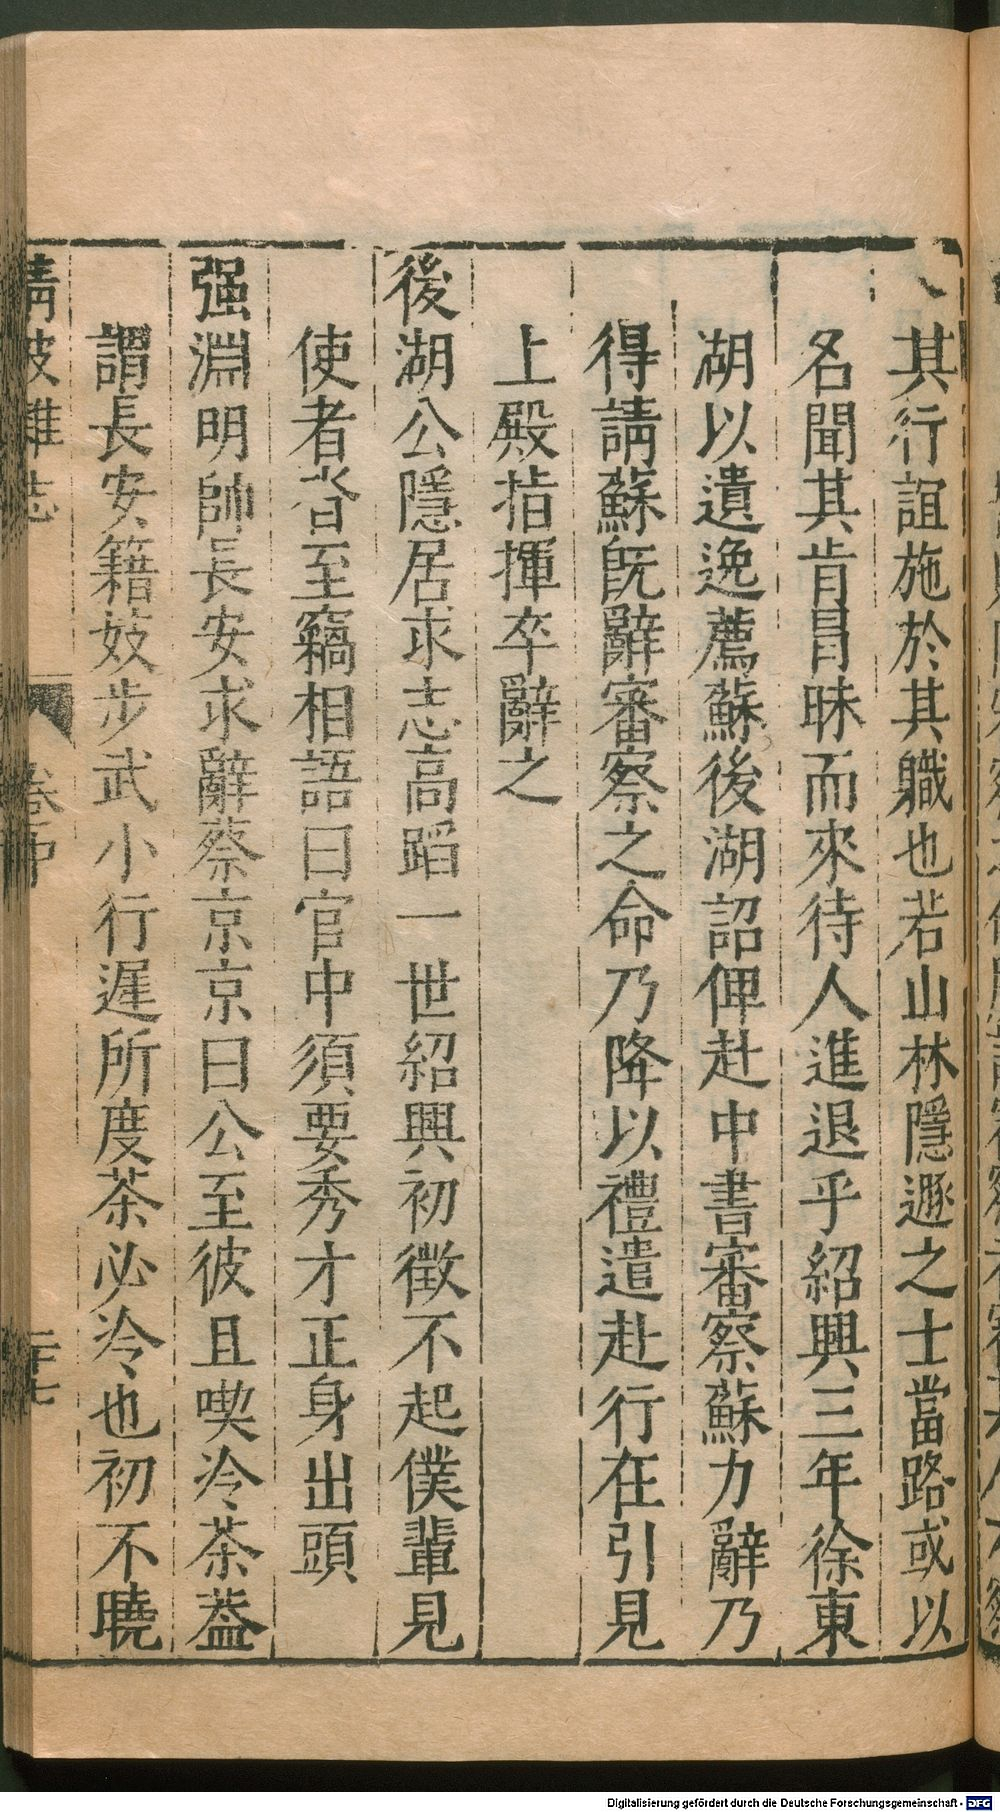 其行誼施於其職也若山林隱遯之士當路或以
名聞其肯冒昧而來待人進退乎紹興三年徐東
湖以遺逸薦蘇後湖詔俾赴中書審察蘇力辭乃
得請蘇旣辭審察之命乃降以禮遣赴行在引見
上殿指揮卒辭之
後湖公隱居求志高蹈一世紹興初徵不起僕輩見
使者沓至竊相語曰官中須要秀才正身出頭
强淵明帥長安求辭蔡京京曰公至彼且喫冷茶葢
謂長安籍妓步武小行遲所度茶必冷也初不曉
清波雜志
卷中
二十七
Digitalisierung gefördert durch die Deutsche Forschungsgemeinschaft - DFG